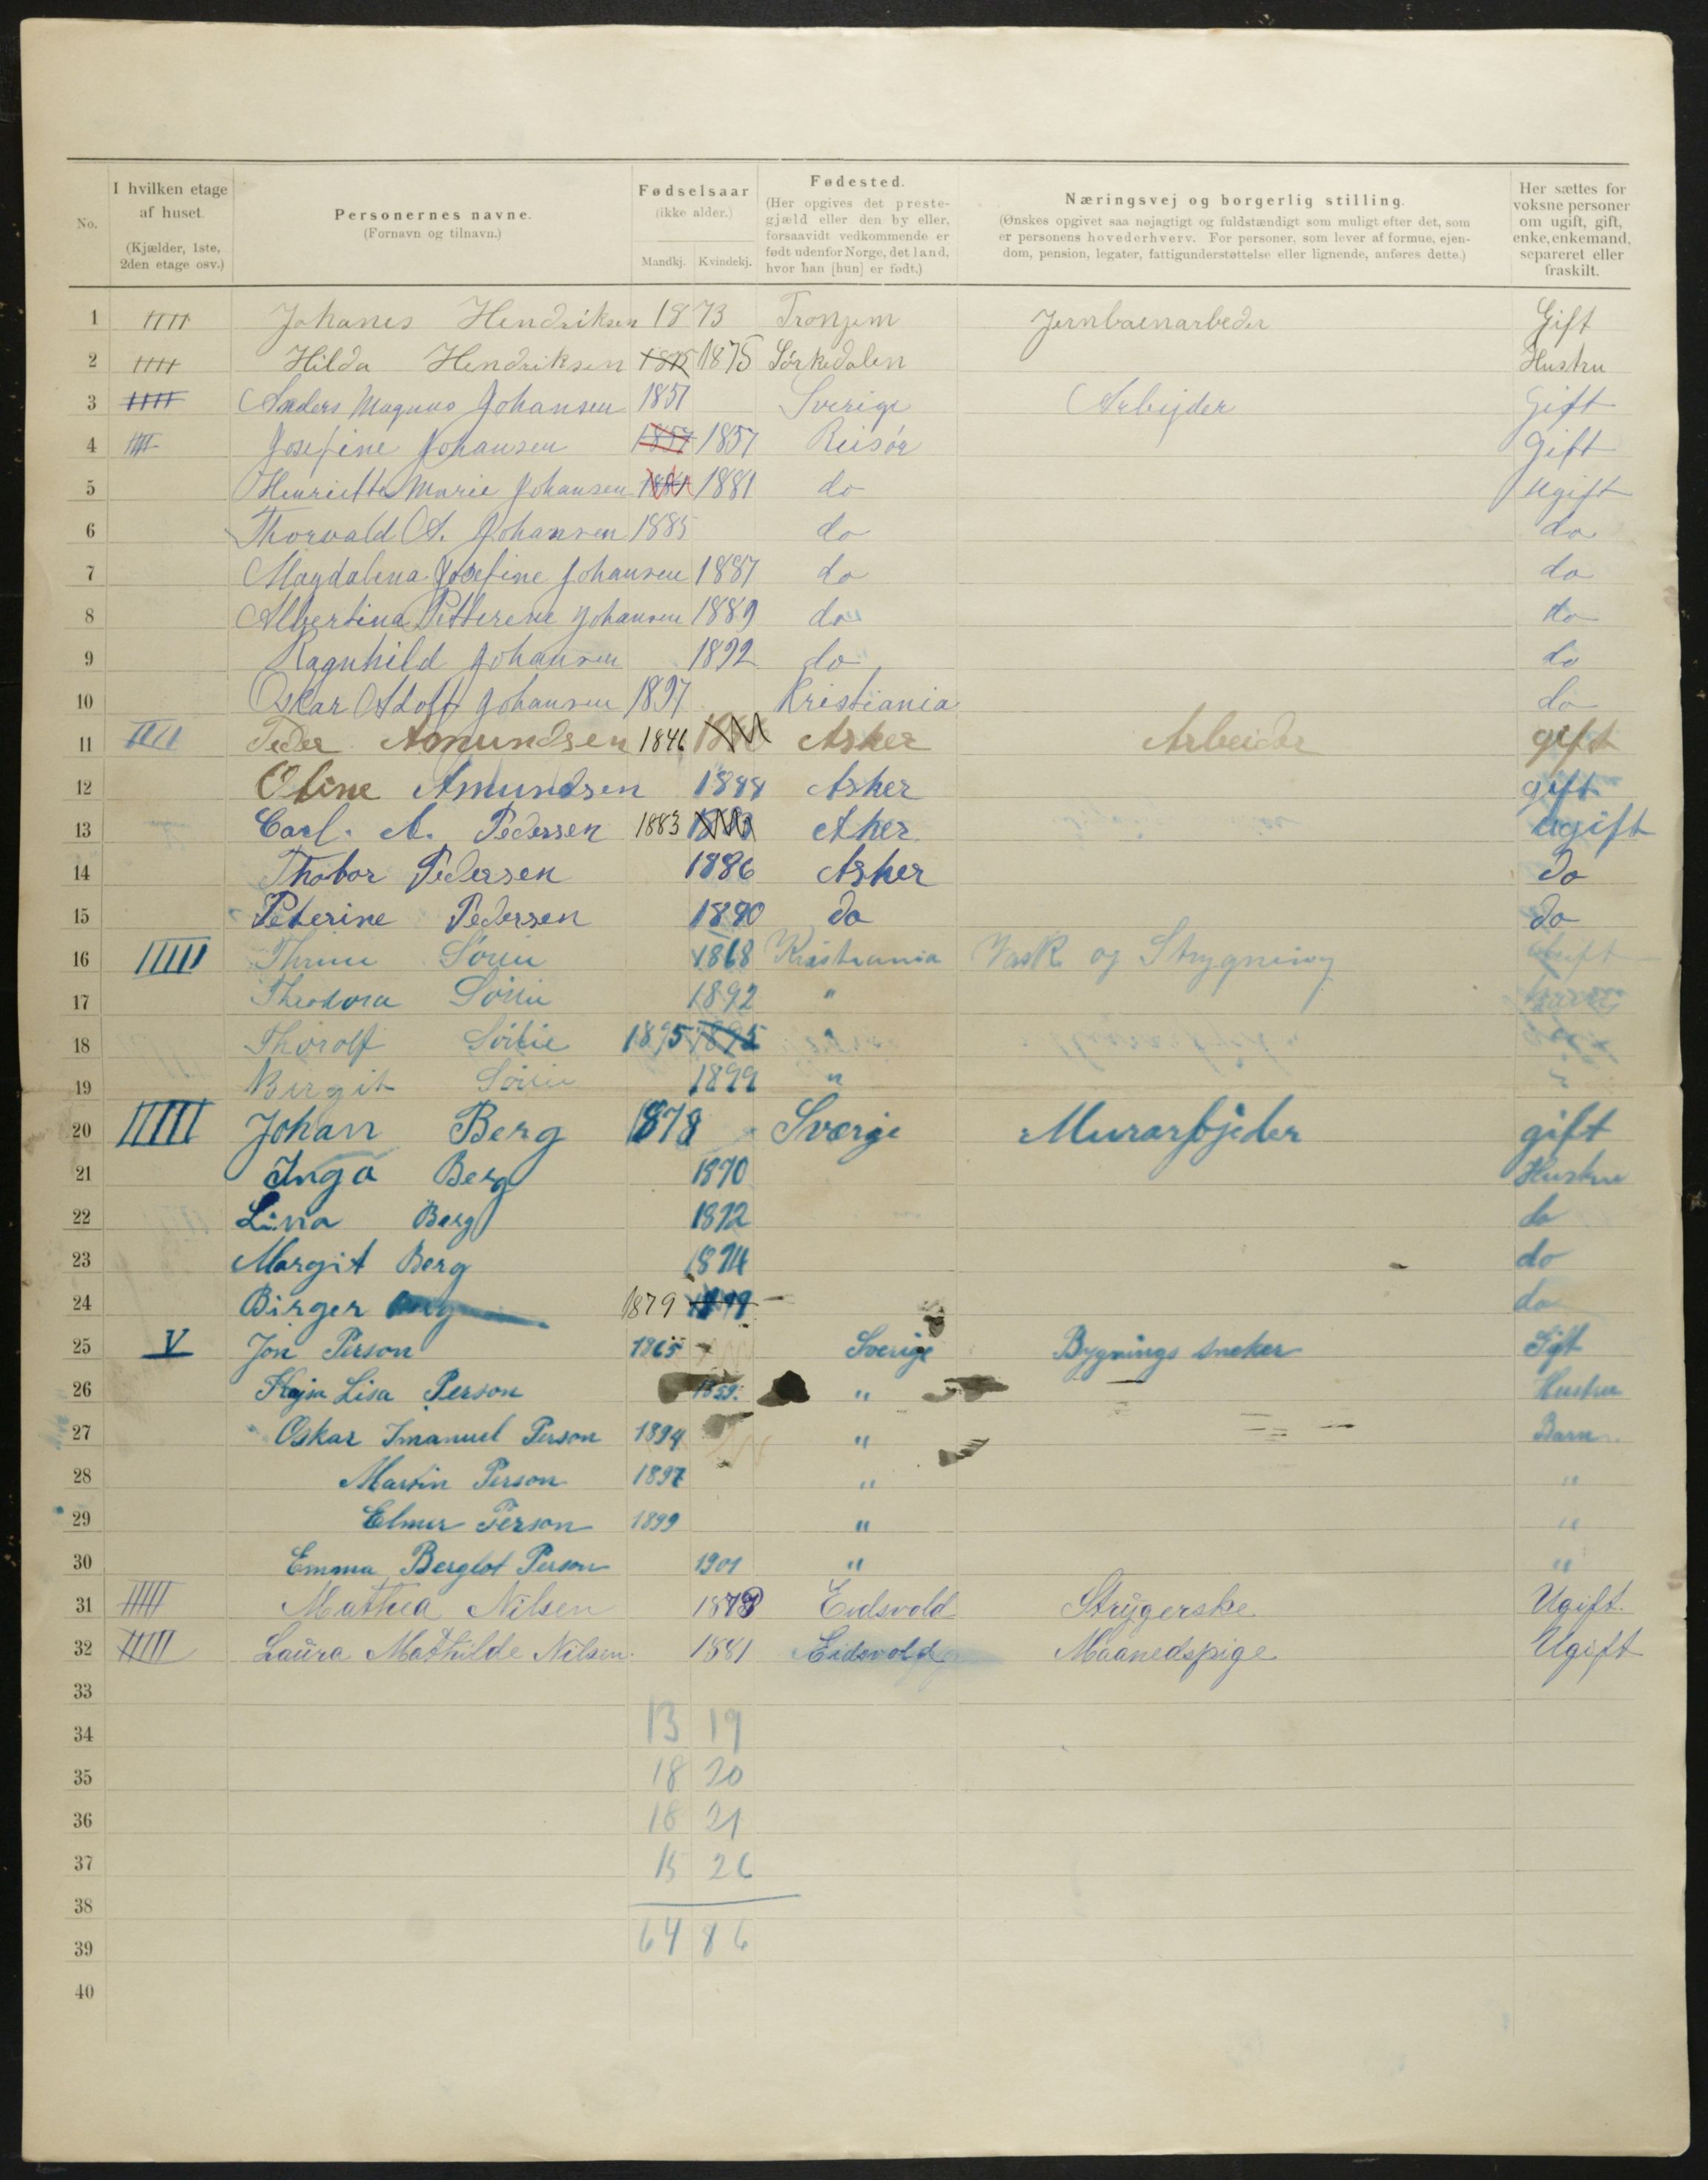 No.
I hvilken etage af huset. (Kjælder, 1ste, 2den etage osv.)
Personernes navne. (Fornavn og tilnavn.)
Fødselsaar (ikke alder.) Mandkj. Kvindekj.
Fødested. (Her opgives det prestegjæld eller den by eller, forsaavidt vedkommende er født udenfor Norge, det land, hvor han [hun] er født.)
Næringsvej og borgerlig stilling. (Ønskes opgivet saa nøjagtigt og fuldstændigt som muligt efter det, som er personens hovederhverv. For personer, som lever af formue, ejendom, pension, legater, fattigunderstøttelse eller lignende, anføres dette.)
Her sættes for voksne personer om ugift, gift, enke, enkemand, separeret eller fraskilt.
1 IIII Johanes Hendriksen 1873 Tronjem Jernbaenarbeder Gift
2 IIII Hilda Hendriksen 1875 1875 Sörkedalen Hustru
3 IIII Anders Magnus Johansen 1851 Sverige Arbejder Gift
4 IIII Josefine Johansen 1857 1857 Reisör Gift
5 Henriette Marie Johansen 1881 1881 do Ugift
6 Thorvald A. Johansen 1885 do do
7 Magdalena Josefine Johansen 1887 do do
8 Albertina Petterene Johansen 1889 do do
9 Ragnhild Johansen 1892 do do
10 Oskar Adolf Johansen 1897 Kristiania do
11 IIII Peder Amundsen 1846 Asker Arbeider gift
12 Oline Amundsen Asker gift
13 Carl. A. Pedersen 1883 Aker ugift
14 Thobor Pedersen 1886 Asker do
15 Peterine Pedersen 1890 do do
16 IIIII 1868 Kristiania Vask og Strygning
17 Theodora 1892 "
18 Thorolf 1895 1895 "
19 Birgit 1899 "
20 IIIII Johan Berg 1878 Sverge Murarbjeder gift
21 Inga Berg 1870 Hustru
22 Lina Berg 1892 do
23 Margit Berg 1894 do
24 Birger Berg 1879 do
25 V Jon Person 1865 Sverige Bygnings sneker Gift
26 Kajsa Lisa Person " Hustru
27 Oskar Imanuel Person 1894 " Barn
28 Martin Person 1897 " "
29 Elmer Person 1899 " "
30 Emma Berglot Person 1901 " "
31 IIIII Mathea Nilsen Eidsvold Strygerske Ugift.
32 IIIII Laura Mathilde Nilsen. 1881 Eidsvold Maanedspige Ugift
33
34 13 19
35 18 20
36 18 21
37 15 26
38
39 64 86
40